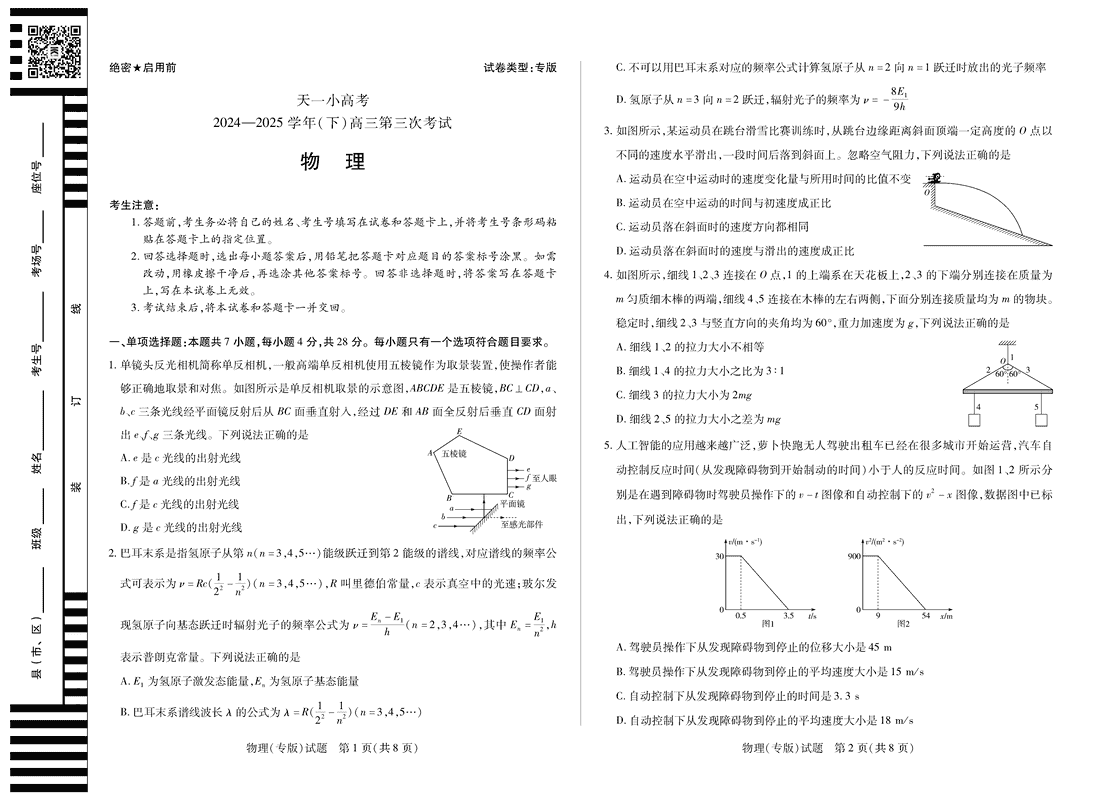 绝密★启用前
试卷类型:专版
天一小高考
2024—2025 学年(下)高三第三次考试
物 理
考生注意:
1. 答题前,考生务必将自己的姓名、考生号填写在试卷和答题卡上,并将考生号条形码粘
贴在答题卡上的指定位置。
2. 回答选择题时,选出每小题答案后,用铅笔把答题卡对应题目的答案标号涂黑。如需
改动,用橡皮擦干净后,再选涂其他答案标号。回答非选择题时,将答案写在答题卡
上,写在本试卷上无效。
3. 考试结束后,将本试卷和答题卡一并交回。
一、单项选择题:本题共 7 小题,每小题 4 分,共 28 分。每小题只有一个选项符合题目要求。
1. 单镜头反光相机简称单反相机,一般高端单反相机使用五棱镜作为取景装置,使操作者能
够正确地取景和对焦。如图所示是单反相机取景的示意图,ABCDE 是五棱镜,BC⊥CD,a、
b、c 三条光线经平面镜反射后从 BC 面垂直射入,经过 DE 和 AB 面全反射后垂直 CD 面射
出 e、f、g 三条光线。下列说法正确的是
A. e 是 c 光线的出射光线
B. f 是 a 光线的出射光线
C. f 是 c 光线的出射光线
D. g 是 c 光线的出射光线
E
A
五棱镜
D
e
f 至人眼
g
B
C
平面镜
a
b
至感光部件
c
2. 巴耳末系是指氢原子从第 n(n=3,4,5…)能级跃迁到第 2 能级的谱线,对应谱线的频率公
式可表示为 ν=Rc(1/2² - 1/n²)(n=3,4,5…),R 叫里德伯常量,c 表示真空中的光速;玻尔发
现氢原子向基态跃迁时辐射光子的频率公式为 ν=(Eₙ-E₁)/h(n=2,3,4…),其中 Eₙ=E₁/n²,h
表示普朗克常量。下列说法正确的是
A. E₁ 为氢原子激发态能量,Eₙ 为氢原子基态能量
B. 巴耳末系谱线波长 λ 的公式为 λ=R(1/2² - 1/n²)(n=3,4,5…)
物理(专版)试题 第 1 页(共 8 页)
C. 不可以用巴耳末系对应的频率公式计算氢原子从 n=2 向 n=1 跃迁时放出的光子频率
D. 氢原子从 n=3 向 n=2 跃迁,辐射光子的频率为 ν=-8E₁/9h
3. 如图所示,某运动员在跳台滑雪比赛训练时,从跳台边缘距离斜面顶端一定高度的 O 点以
不同的速度水平滑出,一段时间后落到斜面上。忽略空气阻力,下列说法正确的是
A. 运动员在空中运动时的速度变化量与所用时间的比值不变
B. 运动员在空中运动的时间与初速度成正比
C. 运动员落在斜面时的速度方向都相同
D. 运动员落在斜面时的速度与滑出的速度成正比
O
4. 如图所示,细线 1、2、3 连接在 O 点,1 的上端系在天花板上,2、3 的下端分别连接在质量为
m 匀质细木棒的两端,细线 4、5 连接在木棒的左右两侧,下面分别连接质量均为 m 的物块。
稳定时,细线 2、3 与竖直方向的夹角均为 60°,重力加速度为 g,下列说法正确的是
A. 细线 1、2 的拉力大小不相等
B. 细线 1、4 的拉力大小之比为 3∶1
C. 细线 3 的拉力大小为 2mg
D. 细线 2、5 的拉力大小之差为 mg
O 1
2 60° 60° 3
4 5
5. 人工智能的应用越来越广泛,萝卜快跑无人驾驶出租车已经在很多城市开始运营,汽车自
动控制反应时间(从发现障碍物到开始制动的时间)小于人的反应时间。如图 1、2 所示分
别是在遇到障碍物时驾驶员操作下的 v-t 图像和自动控制下的 v²-x 图像,数据图中已标
出,下列说法正确的是
v/(m·s⁻¹)
30
0 0.5 3.5 t/s
图1
v²/(m²·s⁻²)
900
0 9 54 x/m
图2
A. 驾驶员操作下从发现障碍物到停止的位移大小是 45 m
B. 驾驶员操作下从发现障碍物到停止的平均速度大小是 15 m/s
C. 自动控制下从发现障碍物到停止的时间是 3.3 s
D. 自动控制下从发现障碍物到停止的平均速度大小是 18 m/s
物理(专版)试题 第 2 页(共 8 页)
座位号
考场号
考生号
姓名
班级
县(市、区)
线
订
装